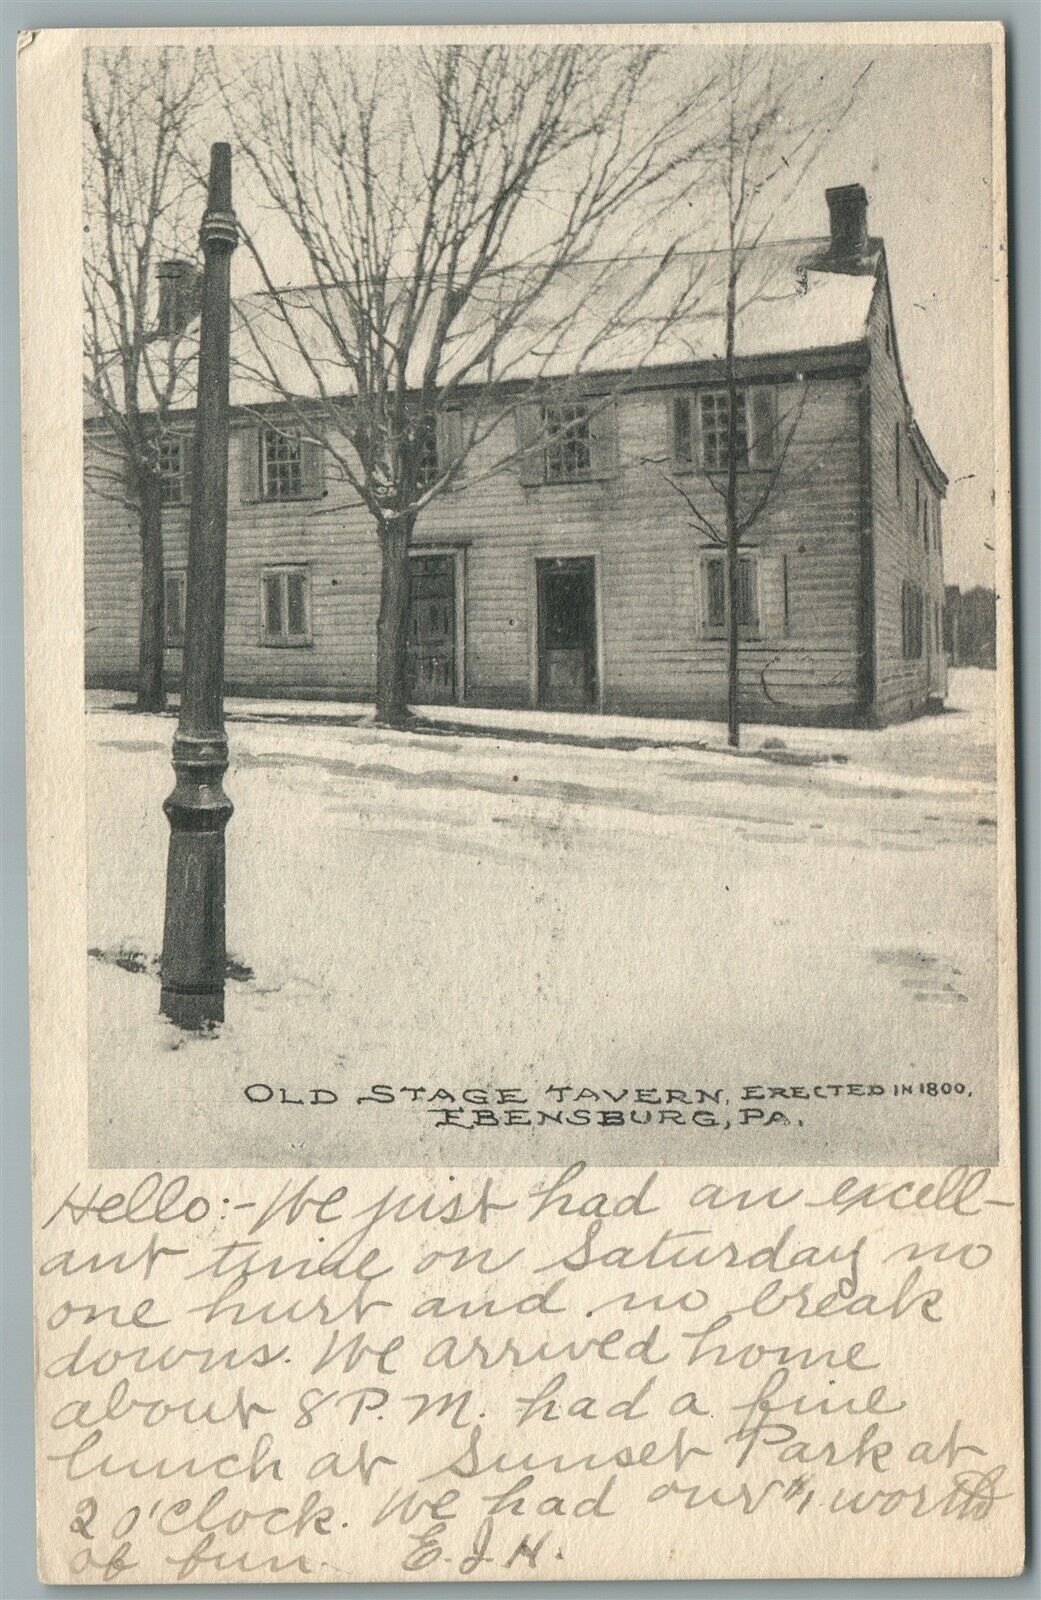 OLD STAGE TAVERN, ERECTED IN 1800,
EBENSBURG, PA.
Hello:- We just had an excell-
ant time on Saturday no
one hurt and no break
downs. We arrived home
about 8 P.M. had a fine
lunch at Sunset Park at
2 o'clock. We had our $1, worth
of fun. E.J.H.